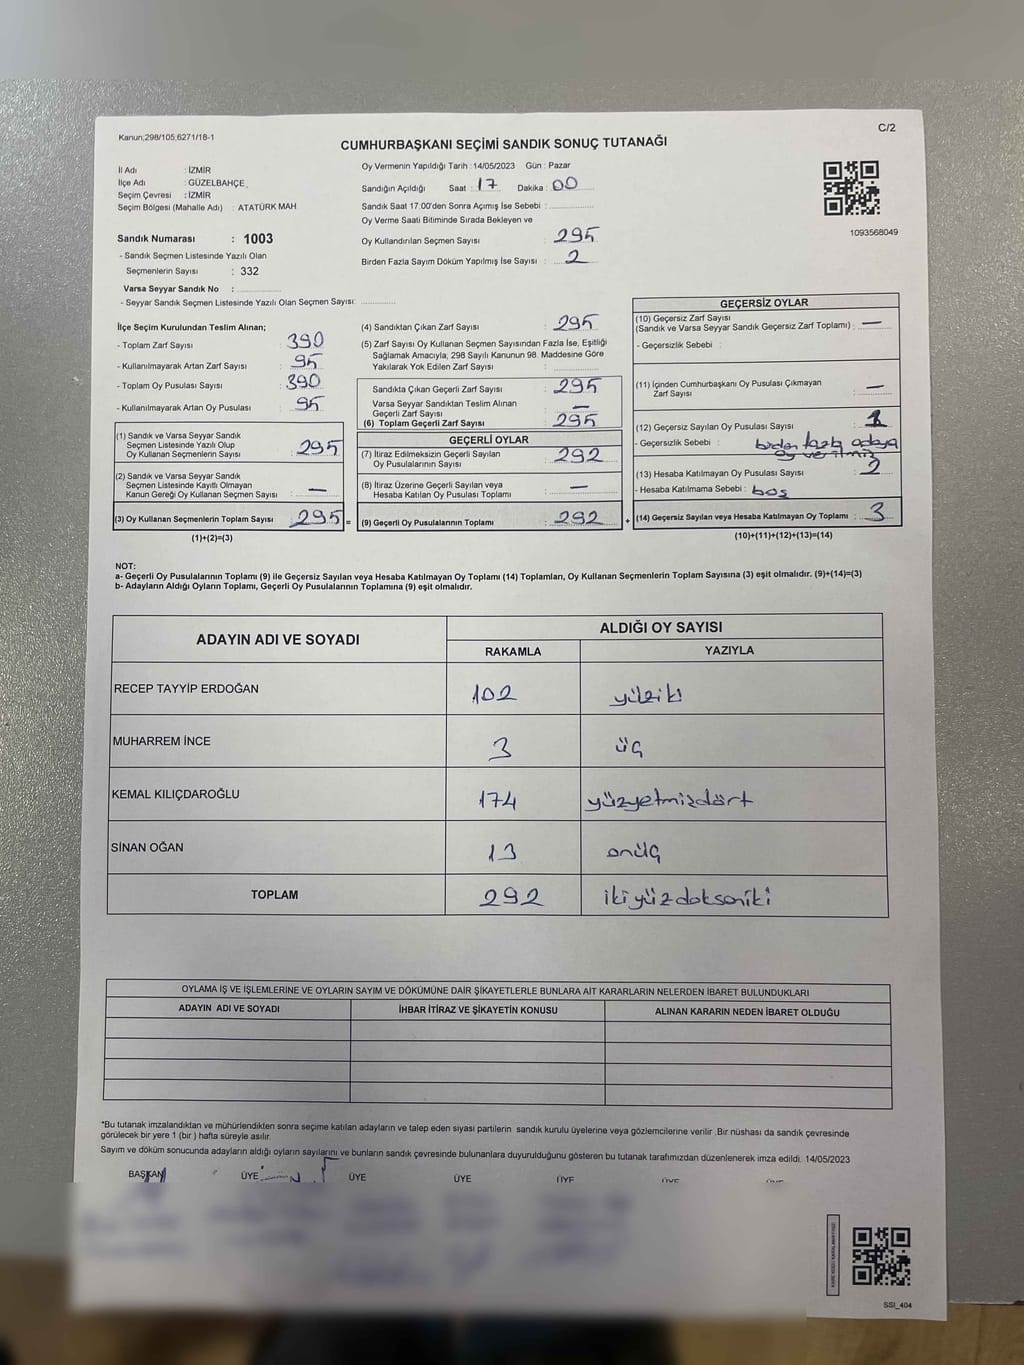 Kanun;298/105;6271/18-1
C/2
CUMHURBAŞKANI SEÇİMİ SANDIK SONUÇ TUTANAĞI
İl Adı : İZMİR
İlçe Adı : GÜZELBAHÇE
Seçim Çevresi : İZMİR
Seçim Bölgesi (Mahalle Adı) : ATATÜRK MAH
Oy Vermenin Yapıldığı Tarih : 14/05/2023 Gün : Pazar
Sandığın Açıldığı Saat : 17 Dakika : 00
Sandık Saat 17:00'den Sonra Açımış İse Sebebi :
Oy Verme Saati Bitiminde Sırada Bekleyen ve
Oy Kullandırılan Seçmen Sayısı : 295
Birden Fazla Sayım Döküm Yapılmış İse Sayısı : 2
1093568049
Sandık Numarası : 1003
- Sandık Seçmen Listesinde Yazılı Olan
Seçmenlerin Sayısı : 332
Varsa Seyyar Sandık No :
- Seyyar Sandık Seçmen Listesinde Yazılı Olan Seçmen Sayısı:
İlçe Seçim Kurulundan Teslim Alınan;
- Toplam Zarf Sayısı : 390
- Kullanılmayarak Artan Zarf Sayısı : 95
- Toplam Oy Pusulası Sayısı : 390
- Kullanılmayarak Artan Oy Pusulası : 95
(1) Sandık ve Varsa Seyyar Sandık
Seçmen Listesinde Yazılı Olup
Oy Kullanan Seçmenlerin Sayısı : 295
(2) Sandık ve Varsa Seyyar Sandık
Seçmen Listesinde Kayıtlı Olmayan
Kanun Gereği Oy Kullanan Seçmen Sayısı : —
(3) Oy Kullanan Seçmenlerin Toplam Sayısı : 295 =
(1)+(2)=(3)
(4) Sandıktan Çıkan Zarf Sayısı : 295
(5) Zarf Sayısı Oy Kullanan Seçmen Sayısından Fazla İse, Eşitliği
Sağlamak Amacıyla, 298 Sayılı Kanunun 98. Maddesine Göre
Yakılarak Yok Edilen Zarf Sayısı :
Sandıkta Çıkan Geçerli Zarf Sayısı : 295
Varsa Seyyar Sandıktan Teslim Alınan
Geçerli Zarf Sayısı : —
(6) Toplam Geçerli Zarf Sayısı : 295
GEÇERLİ OYLAR
(7) İtiraz Edilmeksizin Geçerli Sayılan
Oy Pusulalarının Sayısı : 292
(8) İtiraz Üzerine Geçerli Sayılan veya
Hesaba Katılan Oy Pusulası Toplamı : —
(9) Geçerli Oy Pusulalarının Toplamı : 292 +
GEÇERSİZ OYLAR
(10) Geçersiz Zarf Sayısı
(Sandık ve Varsa Seyyar Sandık Geçersiz Zarf Toplamı) : —
- Geçersizlik Sebebi :
(11) İçinden Cumhurbaşkanı Oy Pusulası Çıkmayan
Zarf Sayısı : —
(12) Geçersiz Sayılan Oy Pusulası Sayısı : 1
- Geçersizlik Sebebi : birden fazla adaya
oy verilmiş
(13) Hesaba Katılmayan Oy Pusulası Sayısı : 2
- Hesaba Katılmama Sebebi : boş
(14) Geçersiz Sayılan veya Hesaba Katılmayan Oy Toplamı : 3
(10)+(11)+(12)+(13)=(14)
NOT:
a- Geçerli Oy Pusulalarının Toplamı (9) ile Geçersiz Sayılan veya Hesaba Katılmayan Oy Toplamı (14) Toplamları, Oy Kullanan Seçmenlerin Toplam Sayısına (3) eşit olmalıdır. (9)+(14)=(3)
b- Adayların Aldığı Oyların Toplamı, Geçerli Oy Pusulalarının Toplamına (9) eşit olmalıdır.
ADAYIN ADI VE SOYADI
ALDIĞI OY SAYISI
RAKAMLA YAZIYLA
RECEP TAYYİP ERDOĞAN 102 yüziki
MUHARREM İNCE 3 üç
KEMAL KILIÇDAROĞLU 174 yüzyetmişdört
SİNAN OĞAN 13 onüç
TOPLAM 292 ikiyüzdoksaniki
OYLAMA İŞ VE İŞLEMLERİNE VE OYLARIN SAYIM VE DÖKÜMÜNE DAİR ŞİKAYETLERLE BUNLARA AİT KARARLARIN NELERDEN İBARET BULUNDUKLARI
ADAYIN ADI VE SOYADI İHBAR İTİRAZ VE ŞİKAYETİN KONUSU ALINAN KARARIN NEDEN İBARET OLDUĞU
*Bu tutanak imzalandıktan ve mühürlendikten sonra seçime katılan adayların ve talep eden siyasi partilerin sandık kurulu üyelerine veya gözlemcilerine verilir .Bir nüshası da sandık çevresinde
görülecek bir yere 1 (bir ) hafta süreyle asılır.
Sayım ve döküm sonucunda adayların aldığı oyların sayılarını ve bunların sandık çevresinde bulunanlara duyurulduğunu gösteren bu tutanak tarafımızdan düzenlenerek imza edildi. 14/05/2023
BAŞKAN ÜYE ÜYE ÜYE ÜYE ÜYE ÜYE
SSI_404